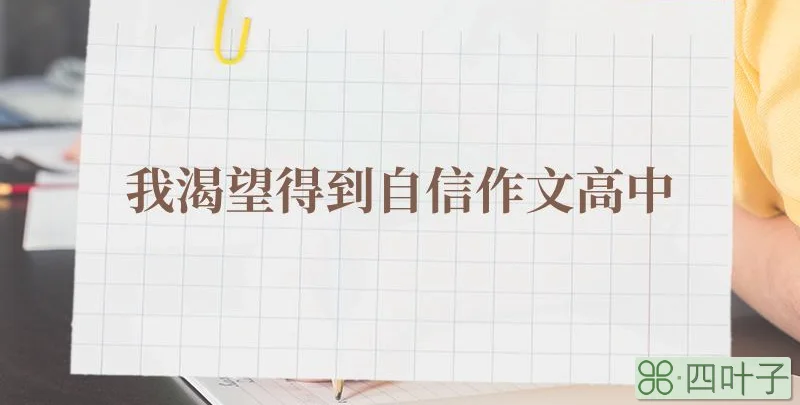 我渴望得到自信作文高中
⌘·四叶子